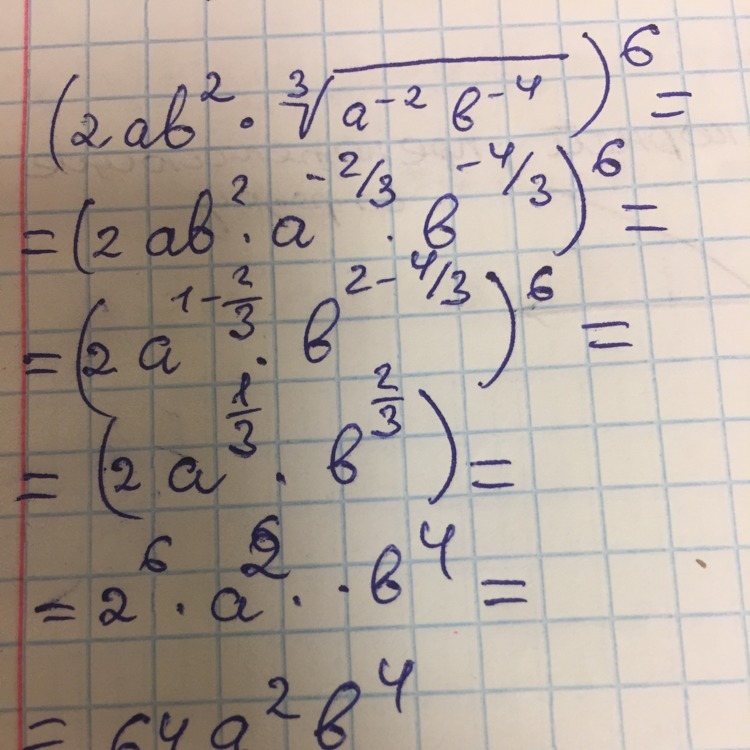 (2ab² · ∛(a⁻² в⁻⁴))⁶ =
= (2ab² · a^(-2/3) · в^(-4/3))⁶ =
= (2a^(1-2/3) · в^(2-4/3))⁶ =
= (2a^(1/3) · в^(2/3)) =
= 2⁶ · a² · · в⁴ =
= 64a²в⁴